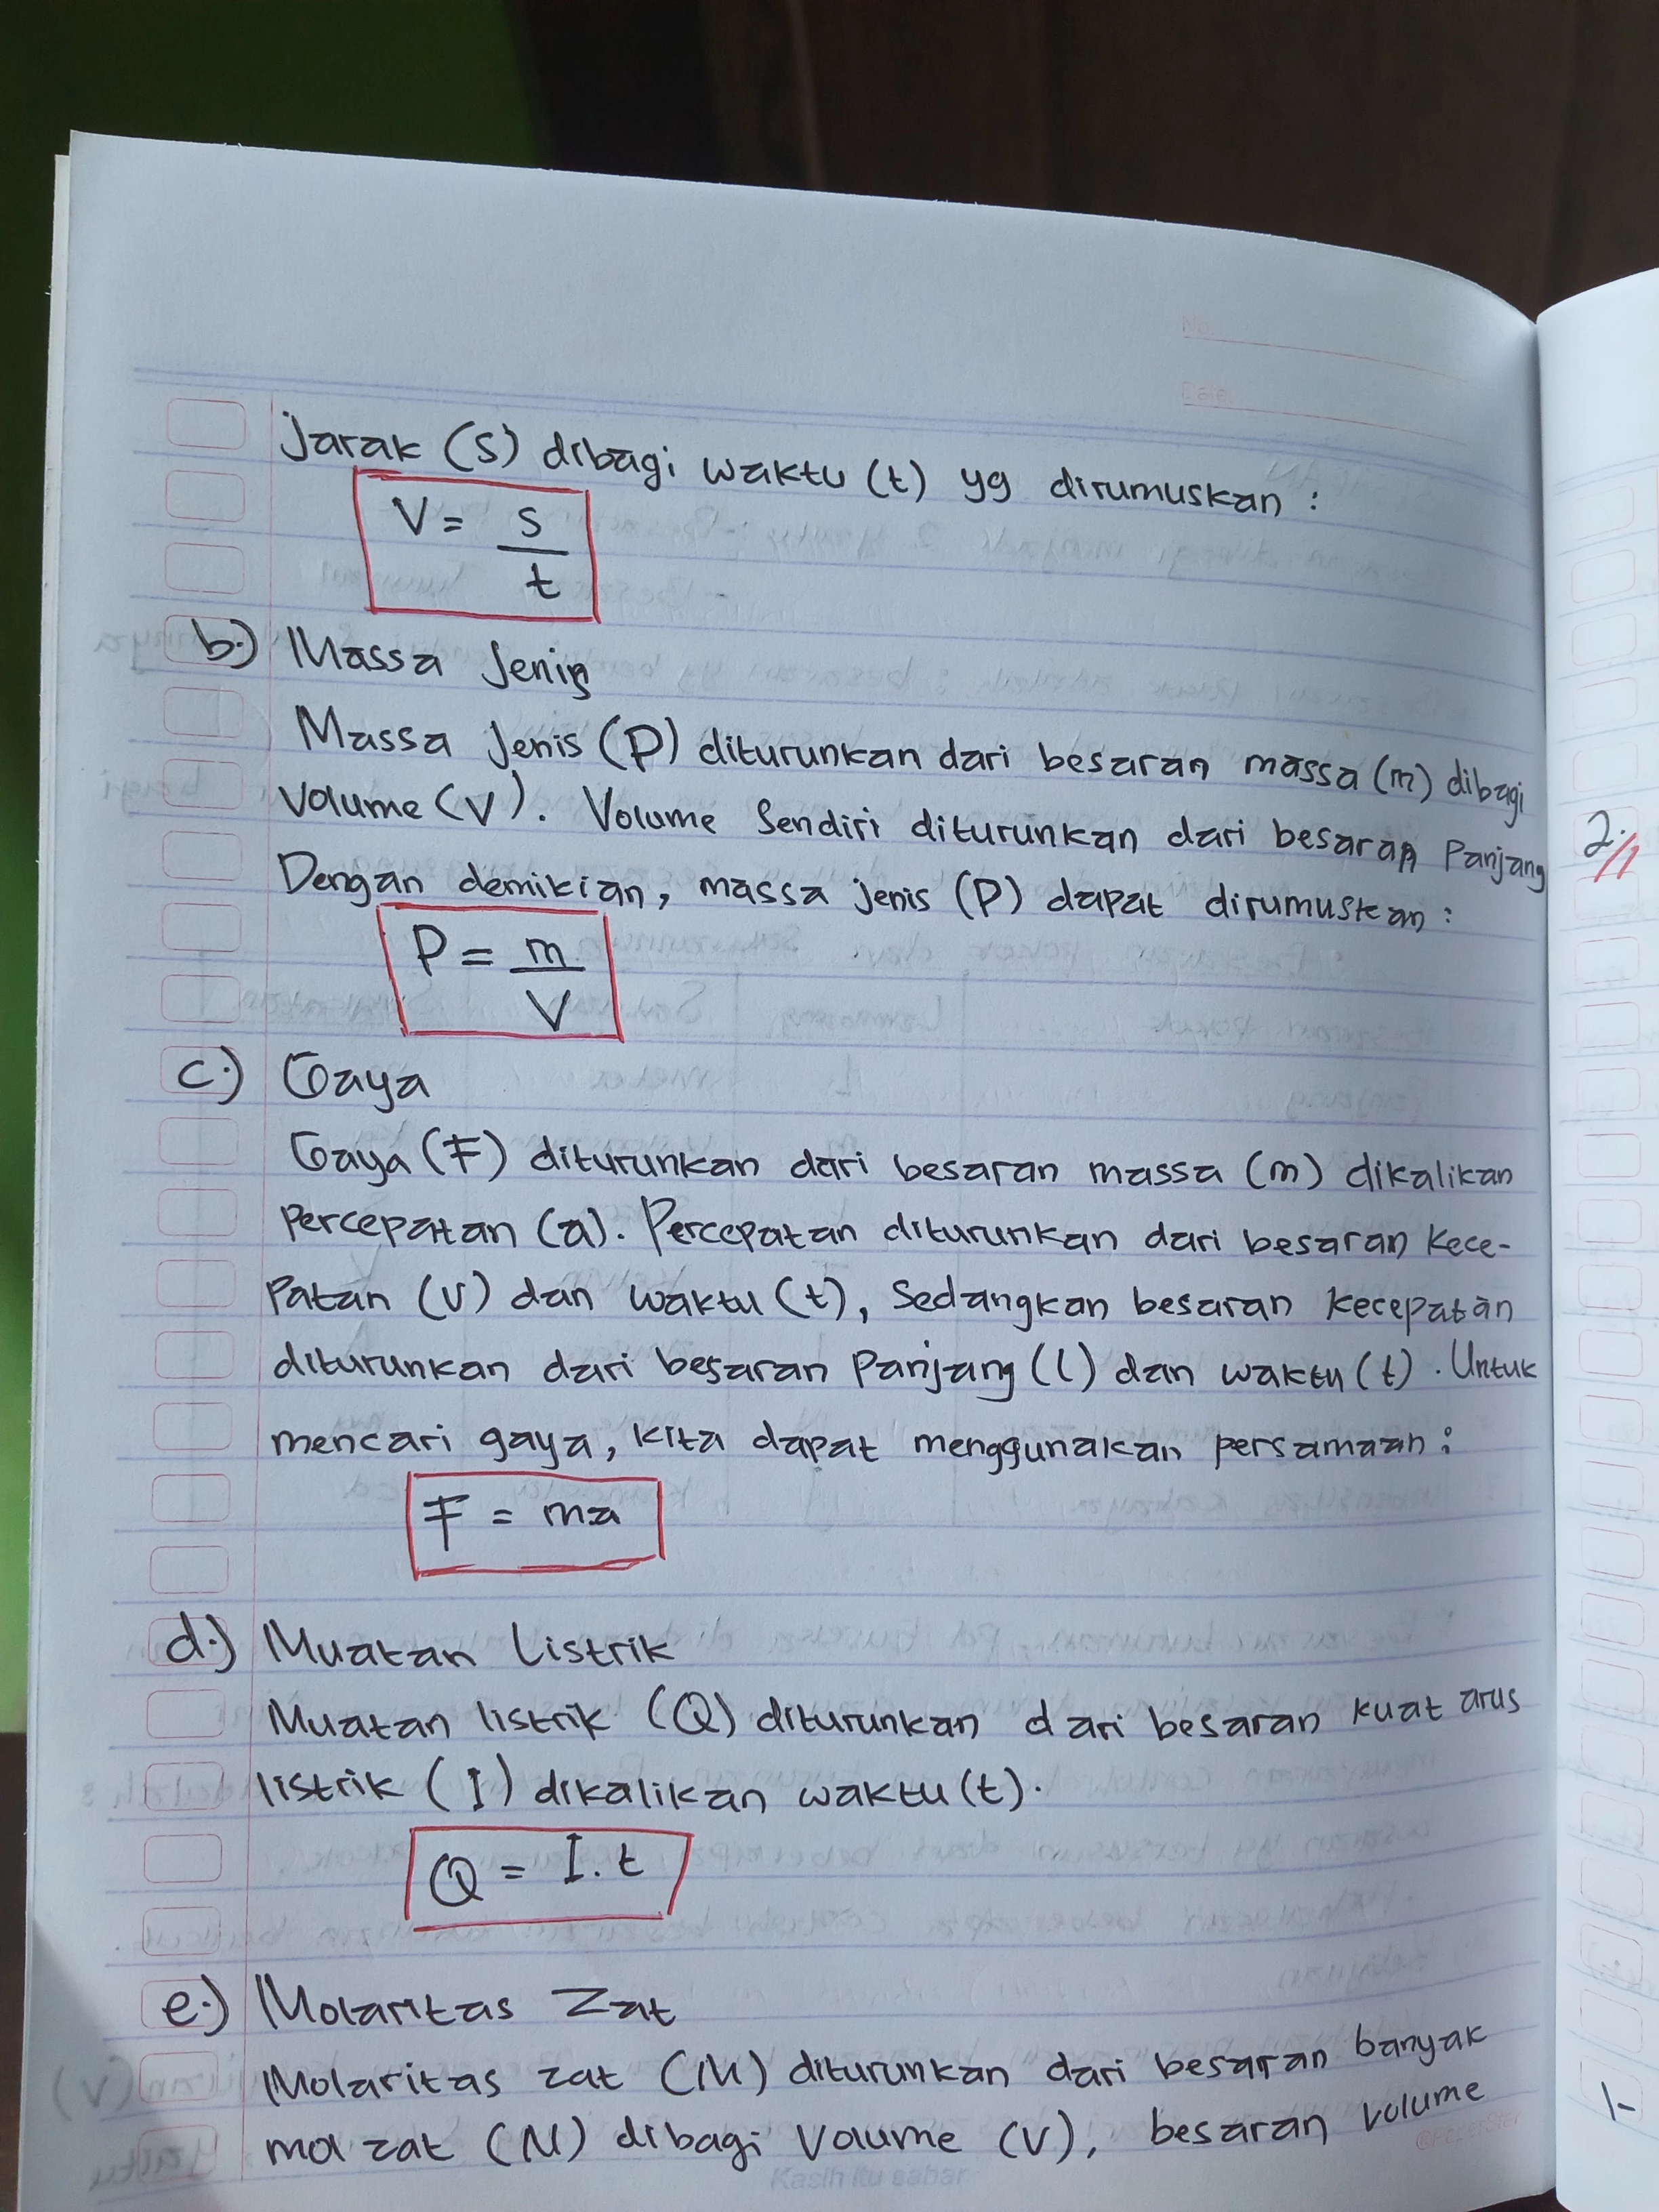 No.
Date.
Jarak (S) dibagi waktu (t) yg dirumuskan :
V = s
t
b.) Massa Jenis
Massa Jenis (P) diturunkan dari besaran massa (m) dibagi
Volume (V). Volume Sendiri diturunkan dari besaran Panjang
Dengan demikian, massa jenis (P) dapat dirumuskan :
P = m
V
c.) Gaya
Gaya (F) diturunkan dari besaran massa (m) dikalikan
Percepatan (a). Percepatan diturunkan dari besaran Kece-
Patan (V) dan waktu (t), Sedangkan besaran kecepatan
diturunkan dari besaran Panjang (l) dan waktu (t). Untuk
mencari gaya, kita dapat menggunakan persamaan :
F = ma
d.) Muatan Listrik
Muatan listrik (Q) diturunkan dari besaran kuat arus
listrik (I) dikalikan waktu (t).
Q = I . t
e.) Molaritas Zat
Molaritas zat (M) diturunkan dari besaran banyak
mol zat (N) dibagi Volume (V), besaran volume
Kasih itu sabar
2.
1.